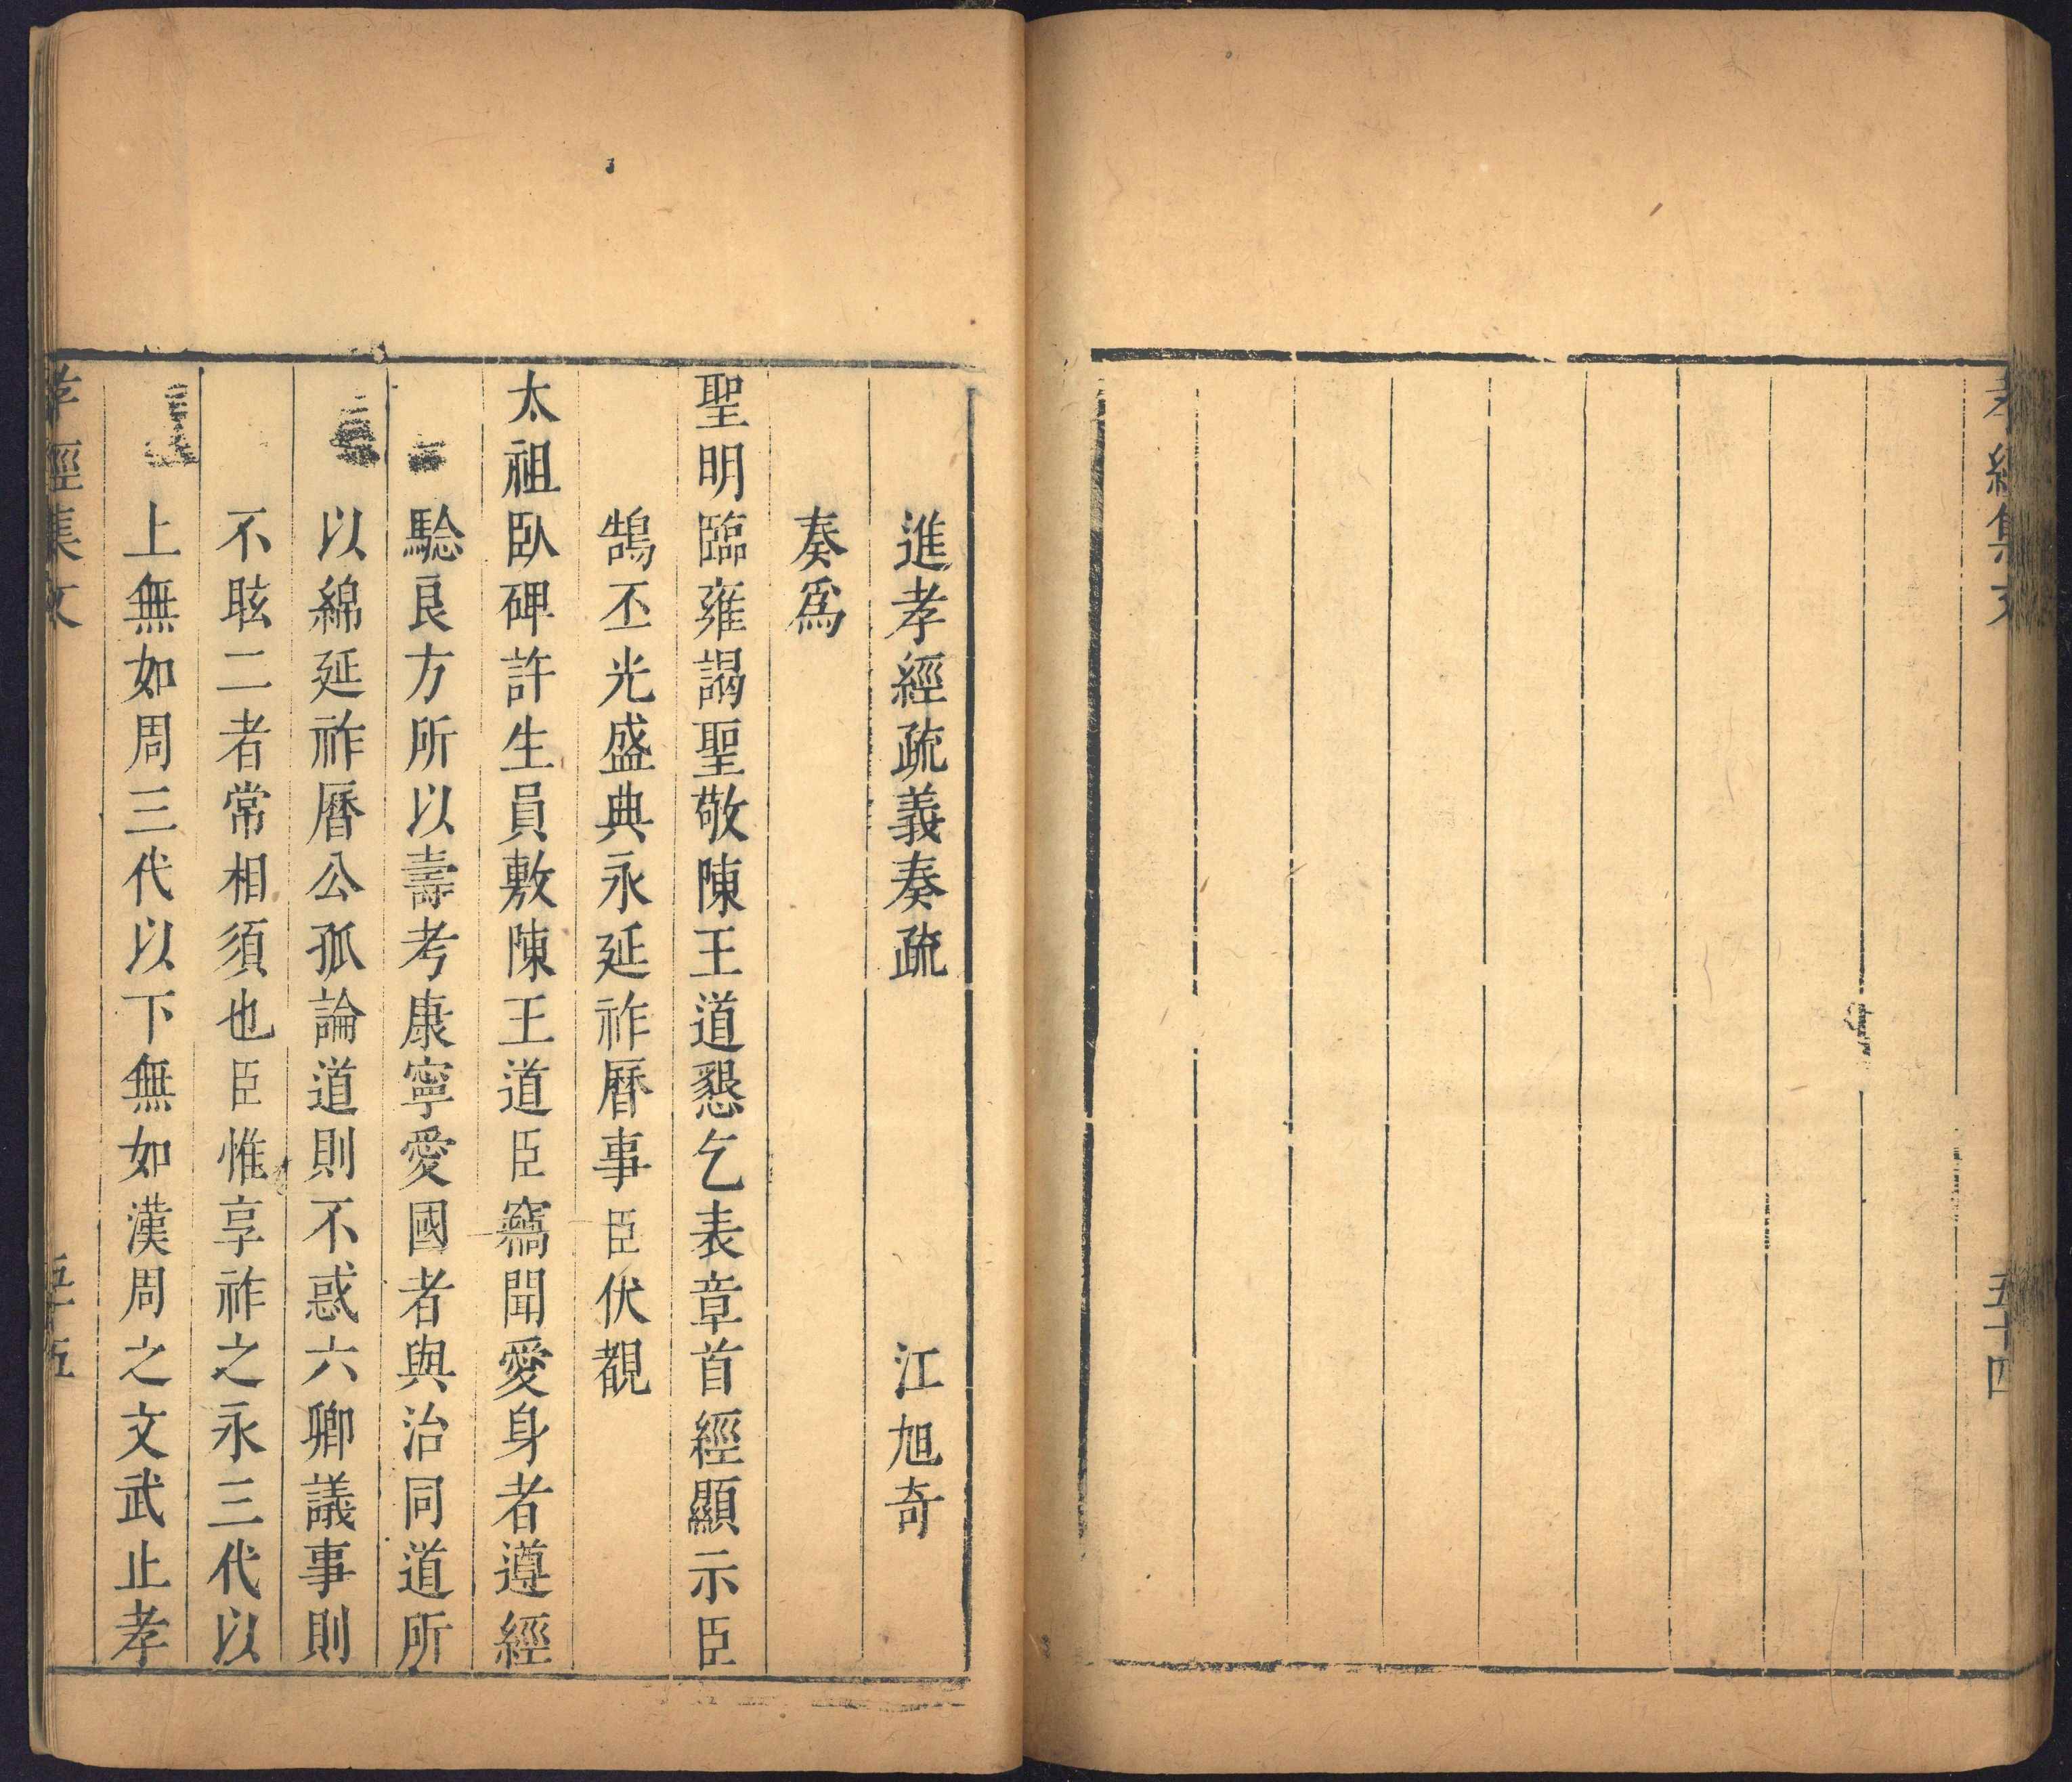 孝經集文
五十四
進孝經疏義奏疏　江旭奇
奏爲
聖明臨雍謁聖敬陳王道懇乞表章首經顯示臣
鵠丕光盛典永延祚曆事臣伏覩
太祖臥碑許生員敷陳王道臣竊聞愛身者遵經
驗良方所以壽考康寧愛國者與治同道所
以綿延祚曆公孤論道則不惑六卿議事則
不眩二者常相須也臣惟享祚之永三代以
上無如周三代以下無如漢周之文武止孝
孝經集文
五十五